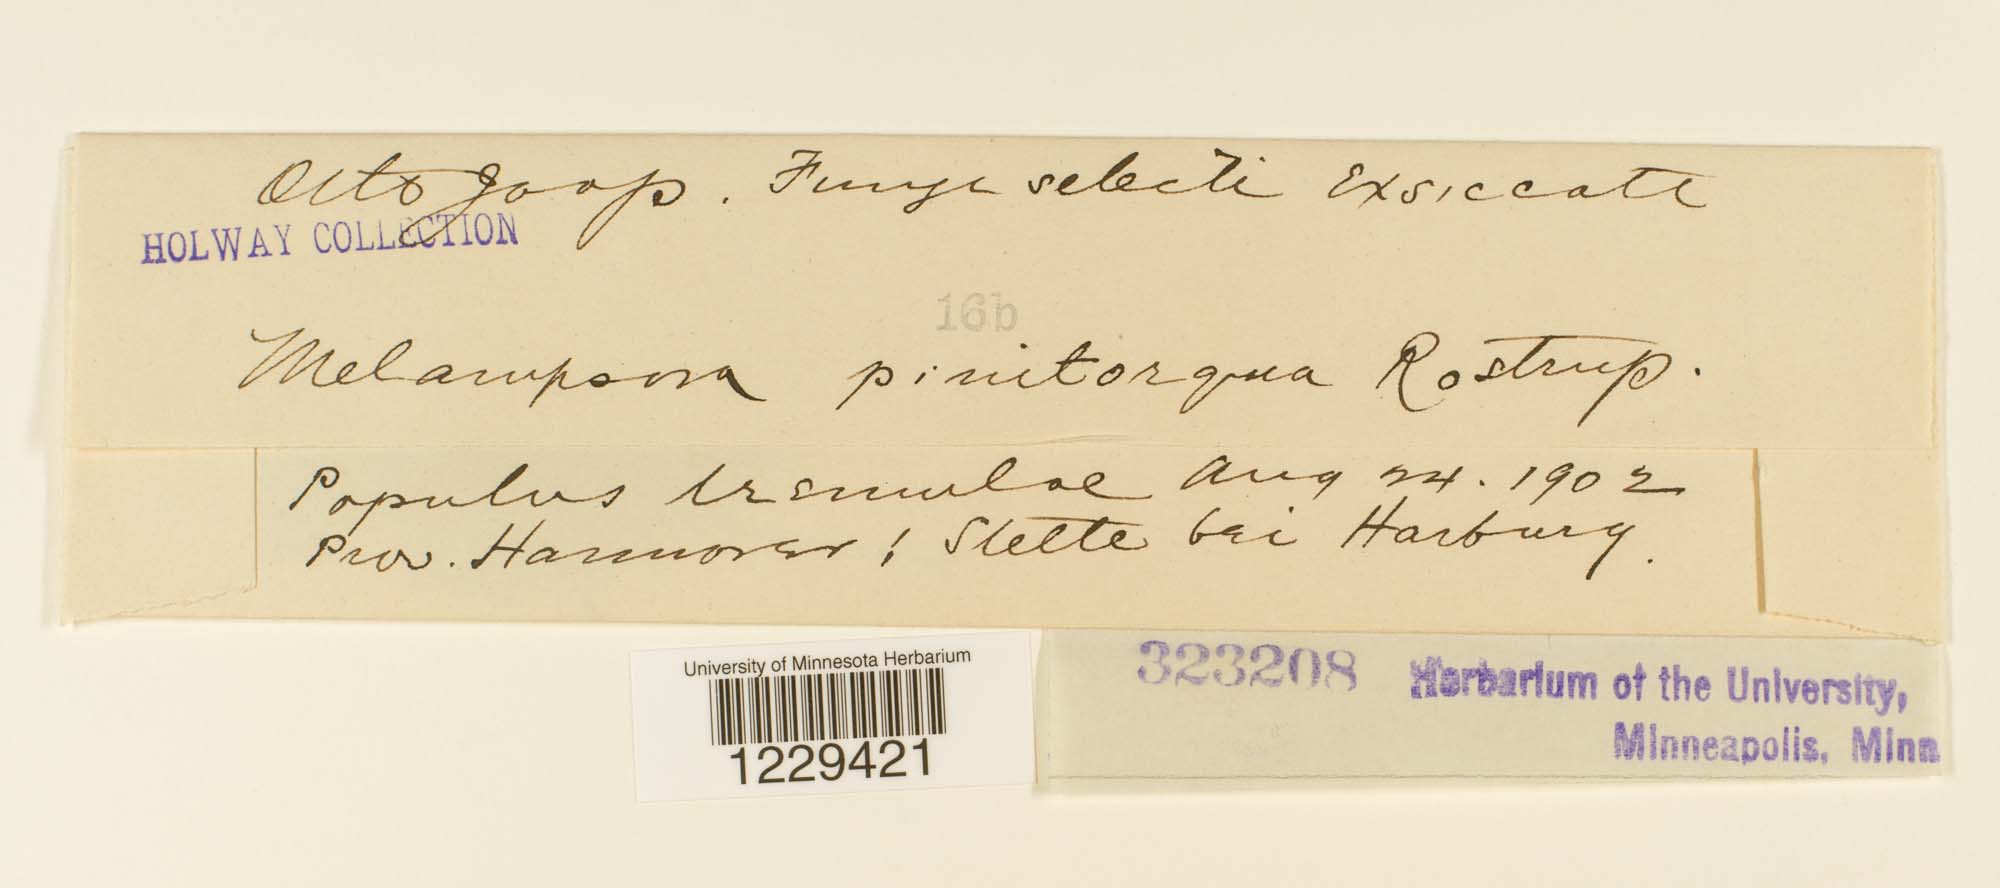 Otto Jaap. Fungi selecti Exsiccati
HOLWAY COLLECTION
16b
Melampsora pinitorqua Rostrup.
Populus tremulae Aug 24. 1902
Prov. Hannover! Stelle bei Harburg.
323208
Herbarium of the University,
Minneapolis, Minn
University of Minnesota Herbarium
1229421